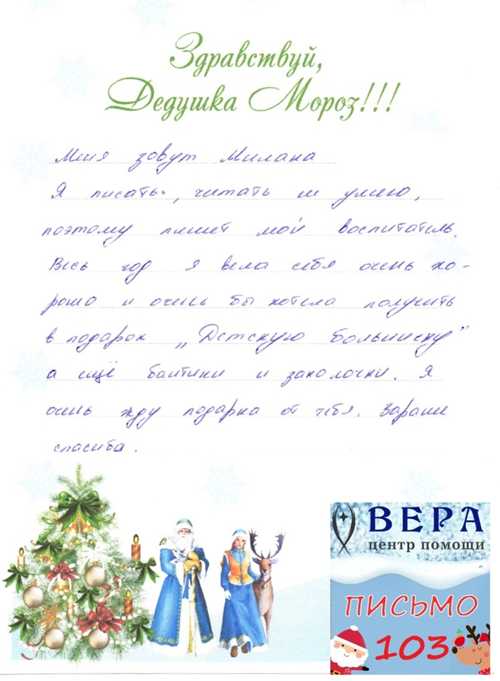 Здравствуй,
Дедушка Мороз!!!
Меня зовут Милана
Я писать, читать не умею,
поэтому пишет мой воспитатель.
Весь год я вела себя очень хо-
рошо и очень бы хотела получить
в подарок „Детскую больничку"
а ещё бантики и заколочки. Я
очень жду подарка от тебя. Заранее
спасиба.
ВЕРА
центр помощи
ПИСЬМО
103